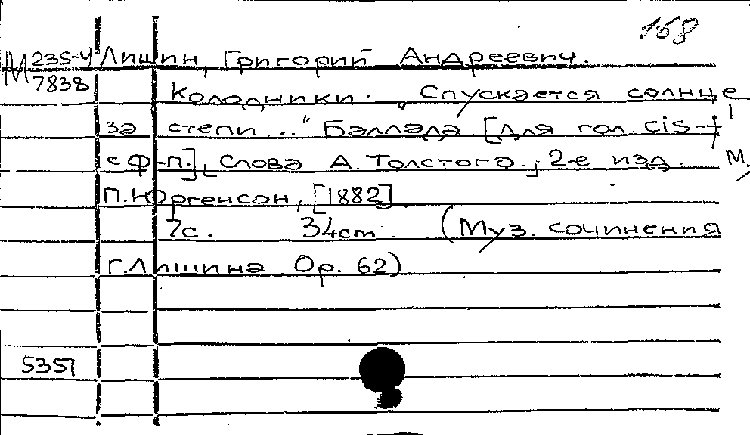 168
М 235-4 Лишин, Григорий Андреевич.
7838
Колодники. „Спускается солнце
за степи..." Баллада [для гол. cis-f¹
с ф-п.], [Слова А. Толстого.] 2-е изд. М.,
П. Юргенсон, [1882]
7с. 34cm. (Муз. сочинения
Г. Лишина Op. 62)
5357